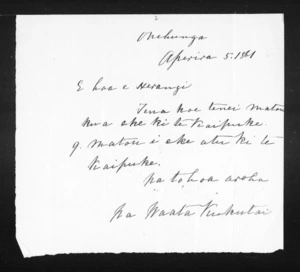 Onehunga
Aperira 5. 1861
E hoa e Herangi
Tena koe tenei matou
kua eke ki te Kaipuke.
9. matou i eke atu ki te
Kaipuke.
na to hoa aroha
Na Waata Kukutai